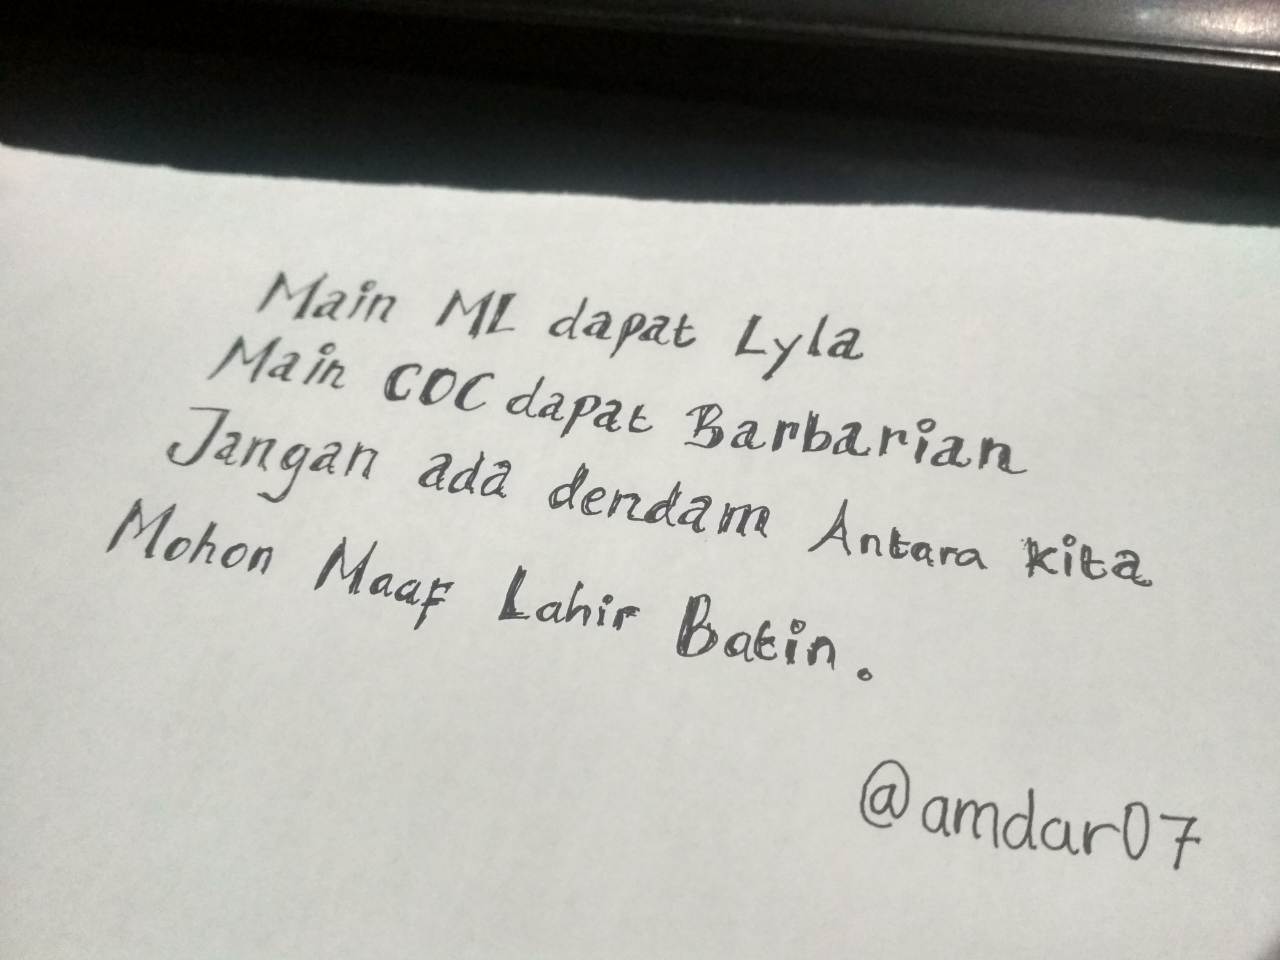 Main ML dapat Lyla
Main COC dapat Barbarian
Jangan ada dendam Antara kita
Mohon Maaf Lahir Batin.
@amdar07